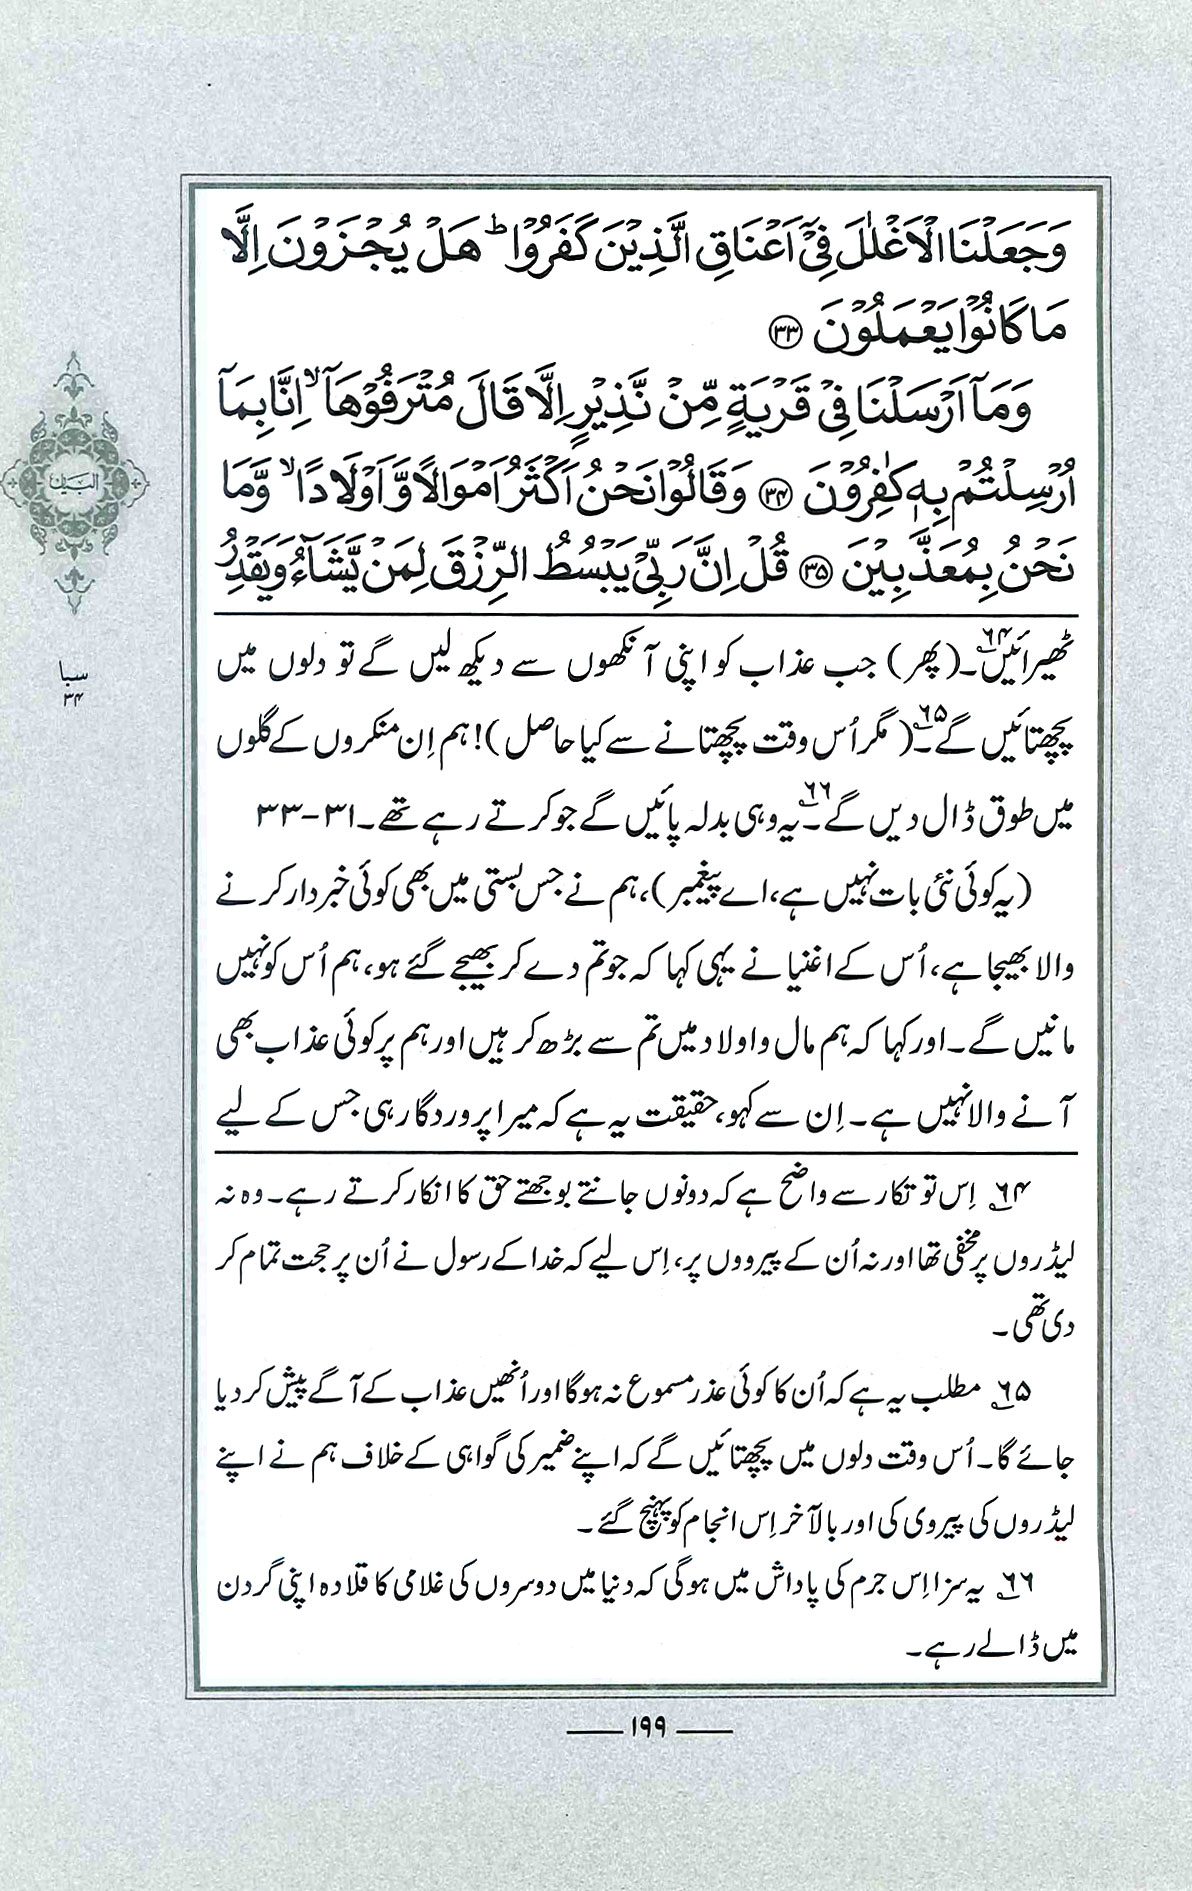 وَجَعَلۡنَا الۡاَغۡلٰلَ فِیۡۤ اَعۡنَاقِ الَّذِیۡنَ کَفَرُوۡا ؕ ہَلۡ یُجۡزَوۡنَ اِلَّا
مَا کَانُوۡا یَعۡمَلُوۡنَ ﴿۳۳﴾
وَمَاۤ اَرۡسَلۡنَا فِیۡ قَرۡیَۃٍ مِّنۡ نَّذِیۡرٍ اِلَّا قَالَ مُتۡرَفُوۡہَاۤ ۙ اِنَّا بِمَاۤ
اُرۡسِلۡتُمۡ بِہٖ کٰفِرُوۡنَ ﴿۳۴﴾ وَقَالُوۡا نَحۡنُ اَکۡثَرُ اَمۡوَالًا وَّاَوۡلَادًا ۙ وَّمَا
نَحۡنُ بِمُعَذَّبِیۡنَ ﴿۳۵﴾ قُلۡ اِنَّ رَبِّیۡ یَبۡسُطُ الرِّزۡقَ لِمَنۡ یَّشَآءُ وَیَقۡدِرُ
ٹھیرائیں۔۶۴ (پھر) جب عذاب کو اپنی آنکھوں سے دیکھ لیں گے تو دلوں میں
پچھتائیں گے۔۶۵ (مگر اُس وقت پچھتانے سے کیا حاصل)! ہم اِن منکروں کے گلوں
میں طوق ڈال دیں گے۔۶۶ یہ وہی بدلہ پائیں گے جو کرتے رہے تھے۔ ۳۱-۳۳
(یہ کوئی نئی بات نہیں ہے، اے پیغمبر)، ہم نے جس بستی میں بھی کوئی خبردار کرنے
والا بھیجا ہے، اُس کے اغنیا نے یہی کہا کہ جو تم دے کر بھیجے گئے ہو، ہم اُس کو نہیں
مانیں گے۔ اور کہا کہ ہم مال و اولاد میں تم سے بڑھ کر ہیں اور ہم پر کوئی عذاب بھی
آنے والا نہیں ہے۔ اِن سے کہو، حقیقت یہ ہے کہ میرا پروردگار ہی جس کے لیے
۶۴؎ اِس تو تکار سے واضح ہے کہ دونوں جانتے بوجھتے حق کا انکار کرتے رہے۔ وہ نہ
لیڈروں پر مخفی تھا اور نہ اُن کے پیرووں پر، اِس لیے کہ خدا کے رسول نے اُن پر حجت تمام کر
دی تھی۔
۶۵؎ مطلب یہ ہے کہ اُن کا کوئی عذر مسموع نہ ہوگا اور اُنھیں عذاب کے آگے پیش کر دیا
جائے گا۔ اُس وقت دلوں میں پچھتائیں گے کہ اپنے ضمیر کی گواہی کے خلاف ہم نے اپنے
لیڈروں کی پیروی کی اور بالآخر اِس انجام کو پہنچ گئے۔
۶۶؎ یہ سزا اِس جرم کی پاداش میں ہوگی کہ دنیا میں دوسروں کی غلامی کا قلادہ اپنی گردن
میں ڈالے رہے۔
البیان
سبا
۳۴
۱۹۹